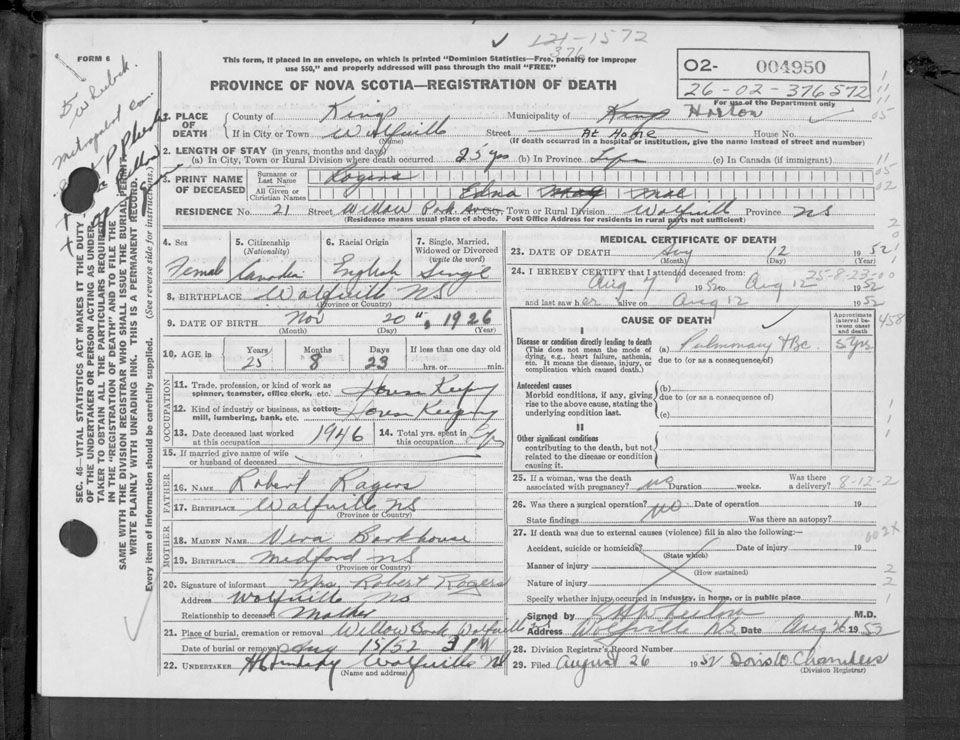 121-1572
376
FORM 6
This form, if placed in an envelope, on which is printed "Dominion Statistics—Free, penalty for improper
use $50," and properly addressed will pass through the mail "FREE"
PROVINCE OF NOVA SCOTIA—REGISTRATION OF DEATH
02- 004950
26-02-376572
For use of the Department only
1. PLACE OF DEATH
County of Kings
Municipality of Kings Horton
If in City or Town Wolfville Street At Home House No.
(Name) (If death occurred in a hospital or institution, give the name instead of street and number)
2. LENGTH OF STAY (in years, months and days)
(a) In City, Town or Rural Division where death occurred 25 yrs (b) In Province Life (c) In Canada (if immigrant)
3. PRINT NAME OF DECEASED
Surname or Last Name Rogers
All Given or Christian Names Edna May Mae
RESIDENCE No. 21 Street Willow Park Ave City, Town or Rural Division Wolfville Province NS
(Residence means usual place of abode. Post Office Address for residents in rural parts not sufficient)
4. Sex
Female
5. Citizenship (Nationality)
Canadian
6. Racial Origin
English
7. Single, Married, Widowed or Divorced (write the word)
Single
8. BIRTHPLACE Wolfville NS
(Province or Country)
9. DATE OF BIRTH Nov 20 1926
(Month) (Day) (Year)
10. AGE in Years Months Days If less than one day old
25 8 23 hrs. or min.
OCCUPATION
11. Trade, profession, or kind of work as spinner, teamster, office clerk, etc. House Keeping
12. Kind of industry or business, as cotton mill, lumbering, bank, etc. House Keeping
13. Date deceased last worked at this occupation 1946
14. Total yrs. spent in this occupation
15. If married give name of wife or husband of deceased
FATHER
16. NAME Robert Rogers
17. BIRTHPLACE Wolfville NS
(Province or Country)
MOTHER
18. MAIDEN NAME Vera Barkhouse
19. BIRTHPLACE Medford NS
(Province or Country)
20. Signature of informant Mrs Robert Rogers
Address Wolfville NS
Relationship to deceased Mother
21. Place of burial, cremation or removal Willow Bank Wolfville
Date of burial or removal Aug 15/52 3 PM
22. UNDERTAKER Wolfville NS
(Name and address)
MEDICAL CERTIFICATE OF DEATH
23. DATE OF DEATH Aug 12 1952
(Month) (Day) (Year)
24. I HEREBY CERTIFY that I attended deceased from:
25-8-23-00
Aug 7 1952 to Aug 12 1952
and last saw her alive on Aug 12 1952
CAUSE OF DEATH
Approximate interval between onset and death
458
I
Disease or condition directly leading to death
(This does not mean the mode of dying, e.g., heart failure, asthenia, etc. It means the disease, injury, or complication which caused death.)
(a) Pulmonary TBc 5 yrs
due to (or as a consequence of)
Antecedent causes
Morbid conditions, if any, giving rise to the above cause, stating the underlying condition last.
(b)
due to (or as a consequence of)
(c)
II
Other significant conditions
contributing to the death, but not related to the disease or condition causing it.
25. If a woman, was the death associated with pregnancy? no Duration weeks. Was there a delivery? 8-12-2
26. Was there a surgical operation? no Date of operation 19
State findings Was there an autopsy?
27. If death was due to external causes (violence) fill in also the following:—
002X
Accident, suicide or homicide? Date of injury 19
(State which)
Manner of injury
(How sustained)
Nature of injury
Specify whether injury occurred in industry, in home, or in public place
Signed by M.D.
Address Wolfville NS Date Aug 26 1952
28. Division Registrar's Record Number
29. Filed August 26 1952 Doris W. Chambers
(Division Registrar)
SEC. 46—VITAL STATISTICS ACT MAKES IT THE DUTY
OF THE UNDERTAKER OR PERSON ACTING AS UNDERTAKER TO OBTAIN ALL THE PARTICULARS REQUIRED
IN THE "REGISTRATION OF DEATH" AND TO FILE THE
SAME WITH THE DIVISION REGISTRAR WHO SHALL ISSUE THE BURIAL PERMIT.
WRITE PLAINLY WITH UNFADING INK. THIS IS A PERMANENT RECORD.
Every item of information should be carefully supplied. (See reverse side for instructions.)